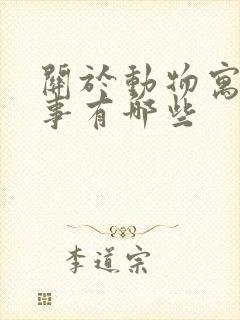 關於動物寓
事有哪些
李道宗